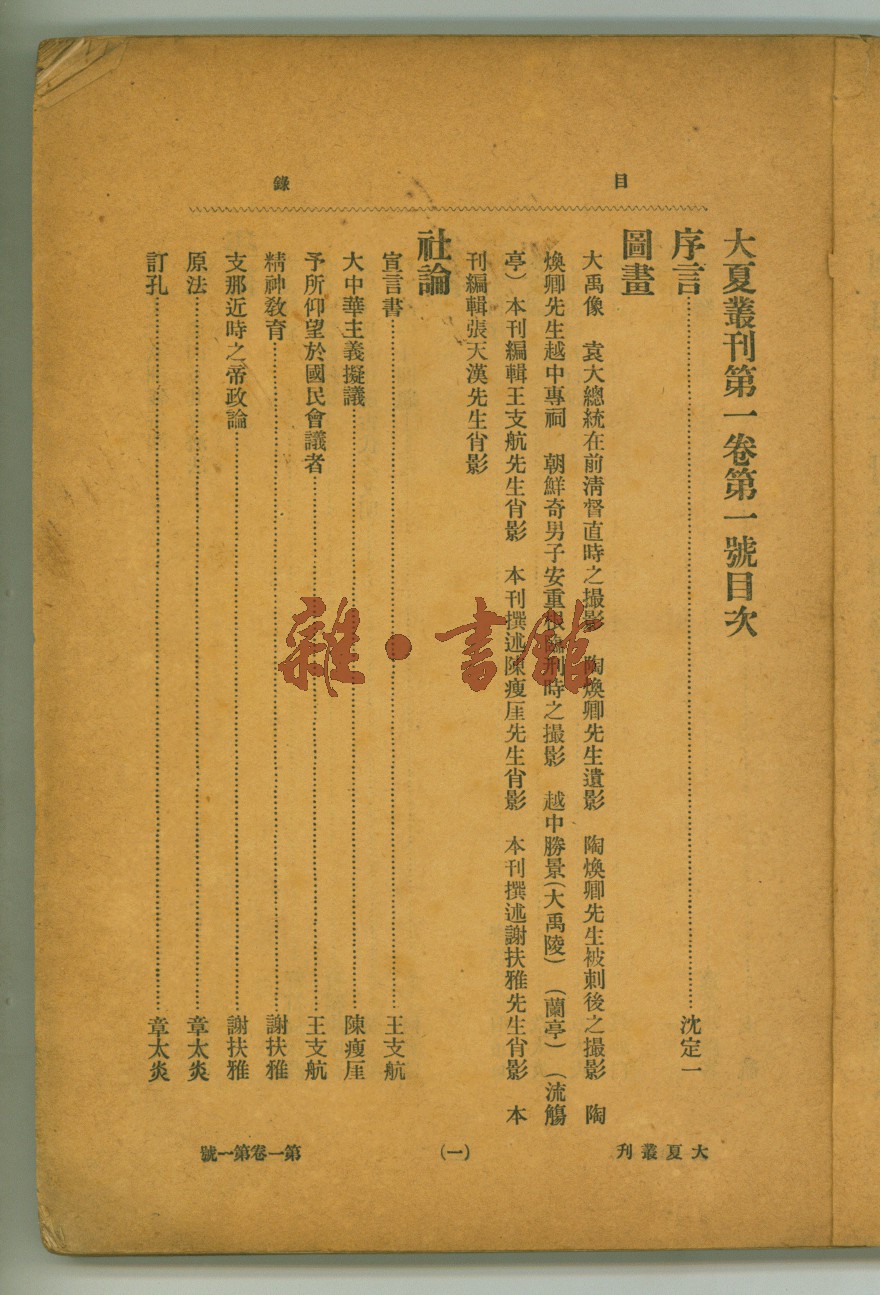 目錄
大夏叢刊第一卷第一號目次
序言……沈定一
圖畫
大禹像　袁大總統在前淸督直時之撮影　陶煥卿先生遺影　陶煥卿先生被刺後之撮影　陶
煥卿先生越中專祠　朝鮮奇男子安重根臨刑時之撮影　越中勝景（大禹陵）（蘭亭）（流觴
亭）本刊編輯王支航先生肖影　本刊撰述陳瘦厓先生肖影　本刊撰述謝扶雅先生肖影　本
刊編輯張天漢先生肖影
社論
宣言書……王支航
大中華主義擬議……陳瘦厓
予所仰望於國民會議者……王支航
精神敎育……謝扶雅
支那近時之帝政論……謝扶雅
原法……章太炎
訂孔……章太炎
大夏叢刊
（一）
第一卷第一號
雜·書館